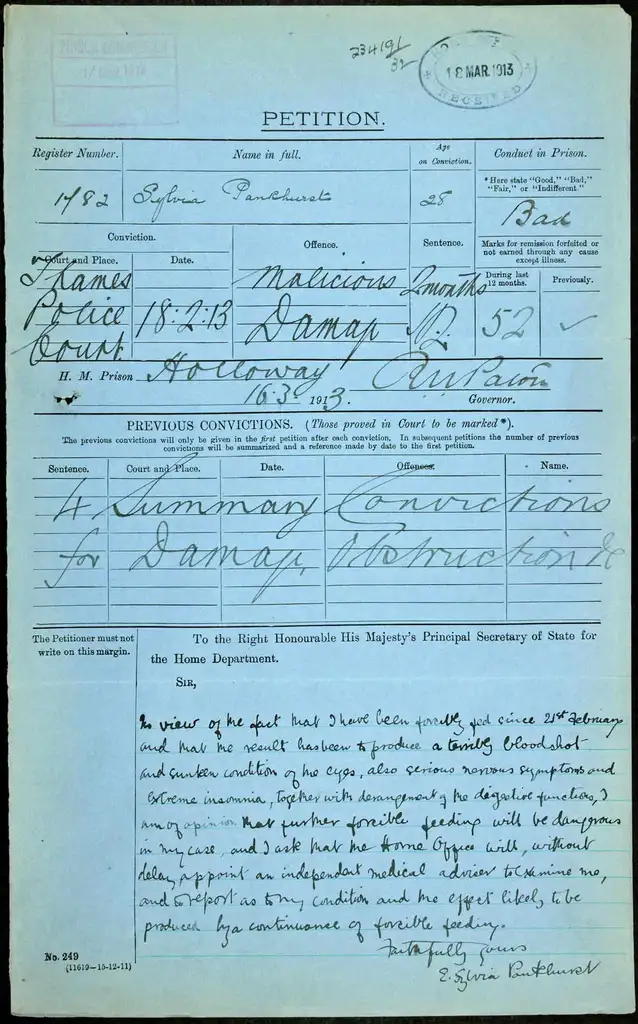 PRISON COMMISSION
17 MAR. 1913
234191/32
18 MAR. 1913
RECEIVED
PETITION.
Register Number. Name in full. Age on Conviction. Conduct in Prison.
*Here state "Good," "Bad," "Fair," or "Indifferent."
1482 Sylvia Pankhurst 28 Bad
Conviction. Offence. Sentence. Marks for remission forfeited or not earned through any cause except illness.
Court and Place. Date. During last 12 months. Previously.
Thames Police Court 18:2:13 Malicious Damage 2 months 52 ✓
H. M. Prison Holloway
16.3. 1913. Governor.
PREVIOUS CONVICTIONS. (Those proved in Court to be marked*).
The previous convictions will only be given in the first petition after each conviction. In subsequent petitions the number of previous
convictions will be summarized and a reference made by date to the first petition.
Sentence. Court and Place. Date. Offences. Name.
4 Summary Convictions
for Damage, Obstruction &c
The Petitioner must not
write on this margin.
To the Right Honourable His Majesty's Principal Secretary of State for
the Home Department.
SIR,
In view of the fact that I have been forcibly fed since 21st February
and that the result has been to produce a terribly bloodshot
and sunken condition of the eyes, also serious nervous symptoms and
extreme insomnia, together with derangement of the digestive functions, I
am of opinion that further forcible feeding will be dangerous
in my case, and I ask that the Home Office will, without
delay, appoint an independent medical adviser to examine me,
and to report as to my condition and the effect likely to be
produced by a continuance of forcible feeding.
Faithfully yours
E. Sylvia Pankhurst
No. 249
(11619—15-12-11)